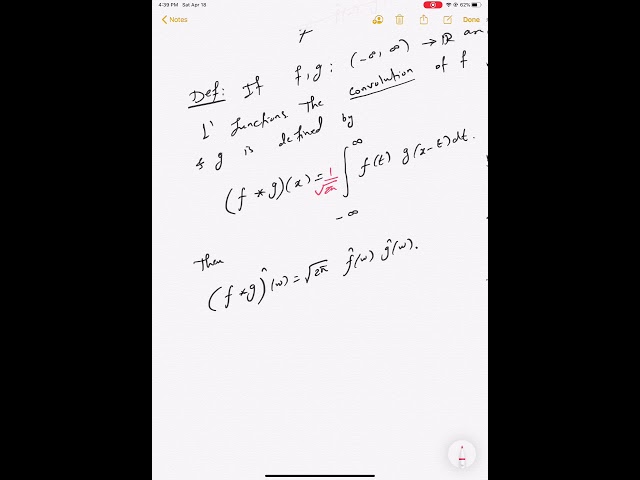 4:39 PM Sat Apr 18
62%
Notes
Done
Def: If f, g : (-∞, ∞) → ℝ are
L' functions the convolution of f
& g is defined by
(f * g)(x) = 1/√2π ∫_{-∞}^{∞} f(t) g(x-t) dt.
Then
(f * g)^(ω) = √2π f̂(ω) ĝ(ω).